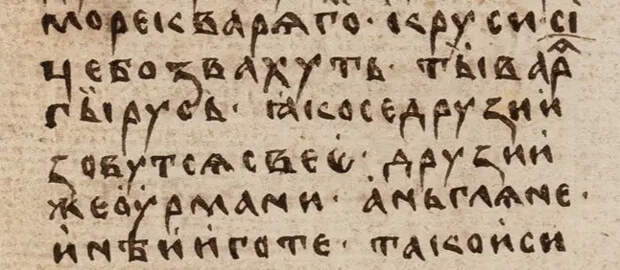 море іс варѧго· іс руси· сі
це бо звахуть· ты варѧ
гы русь· ꙗко се друзии
зовутсѧ свеѡ· друзии
же оурмани· аньглѧне·
инѣи и готе· тако и си